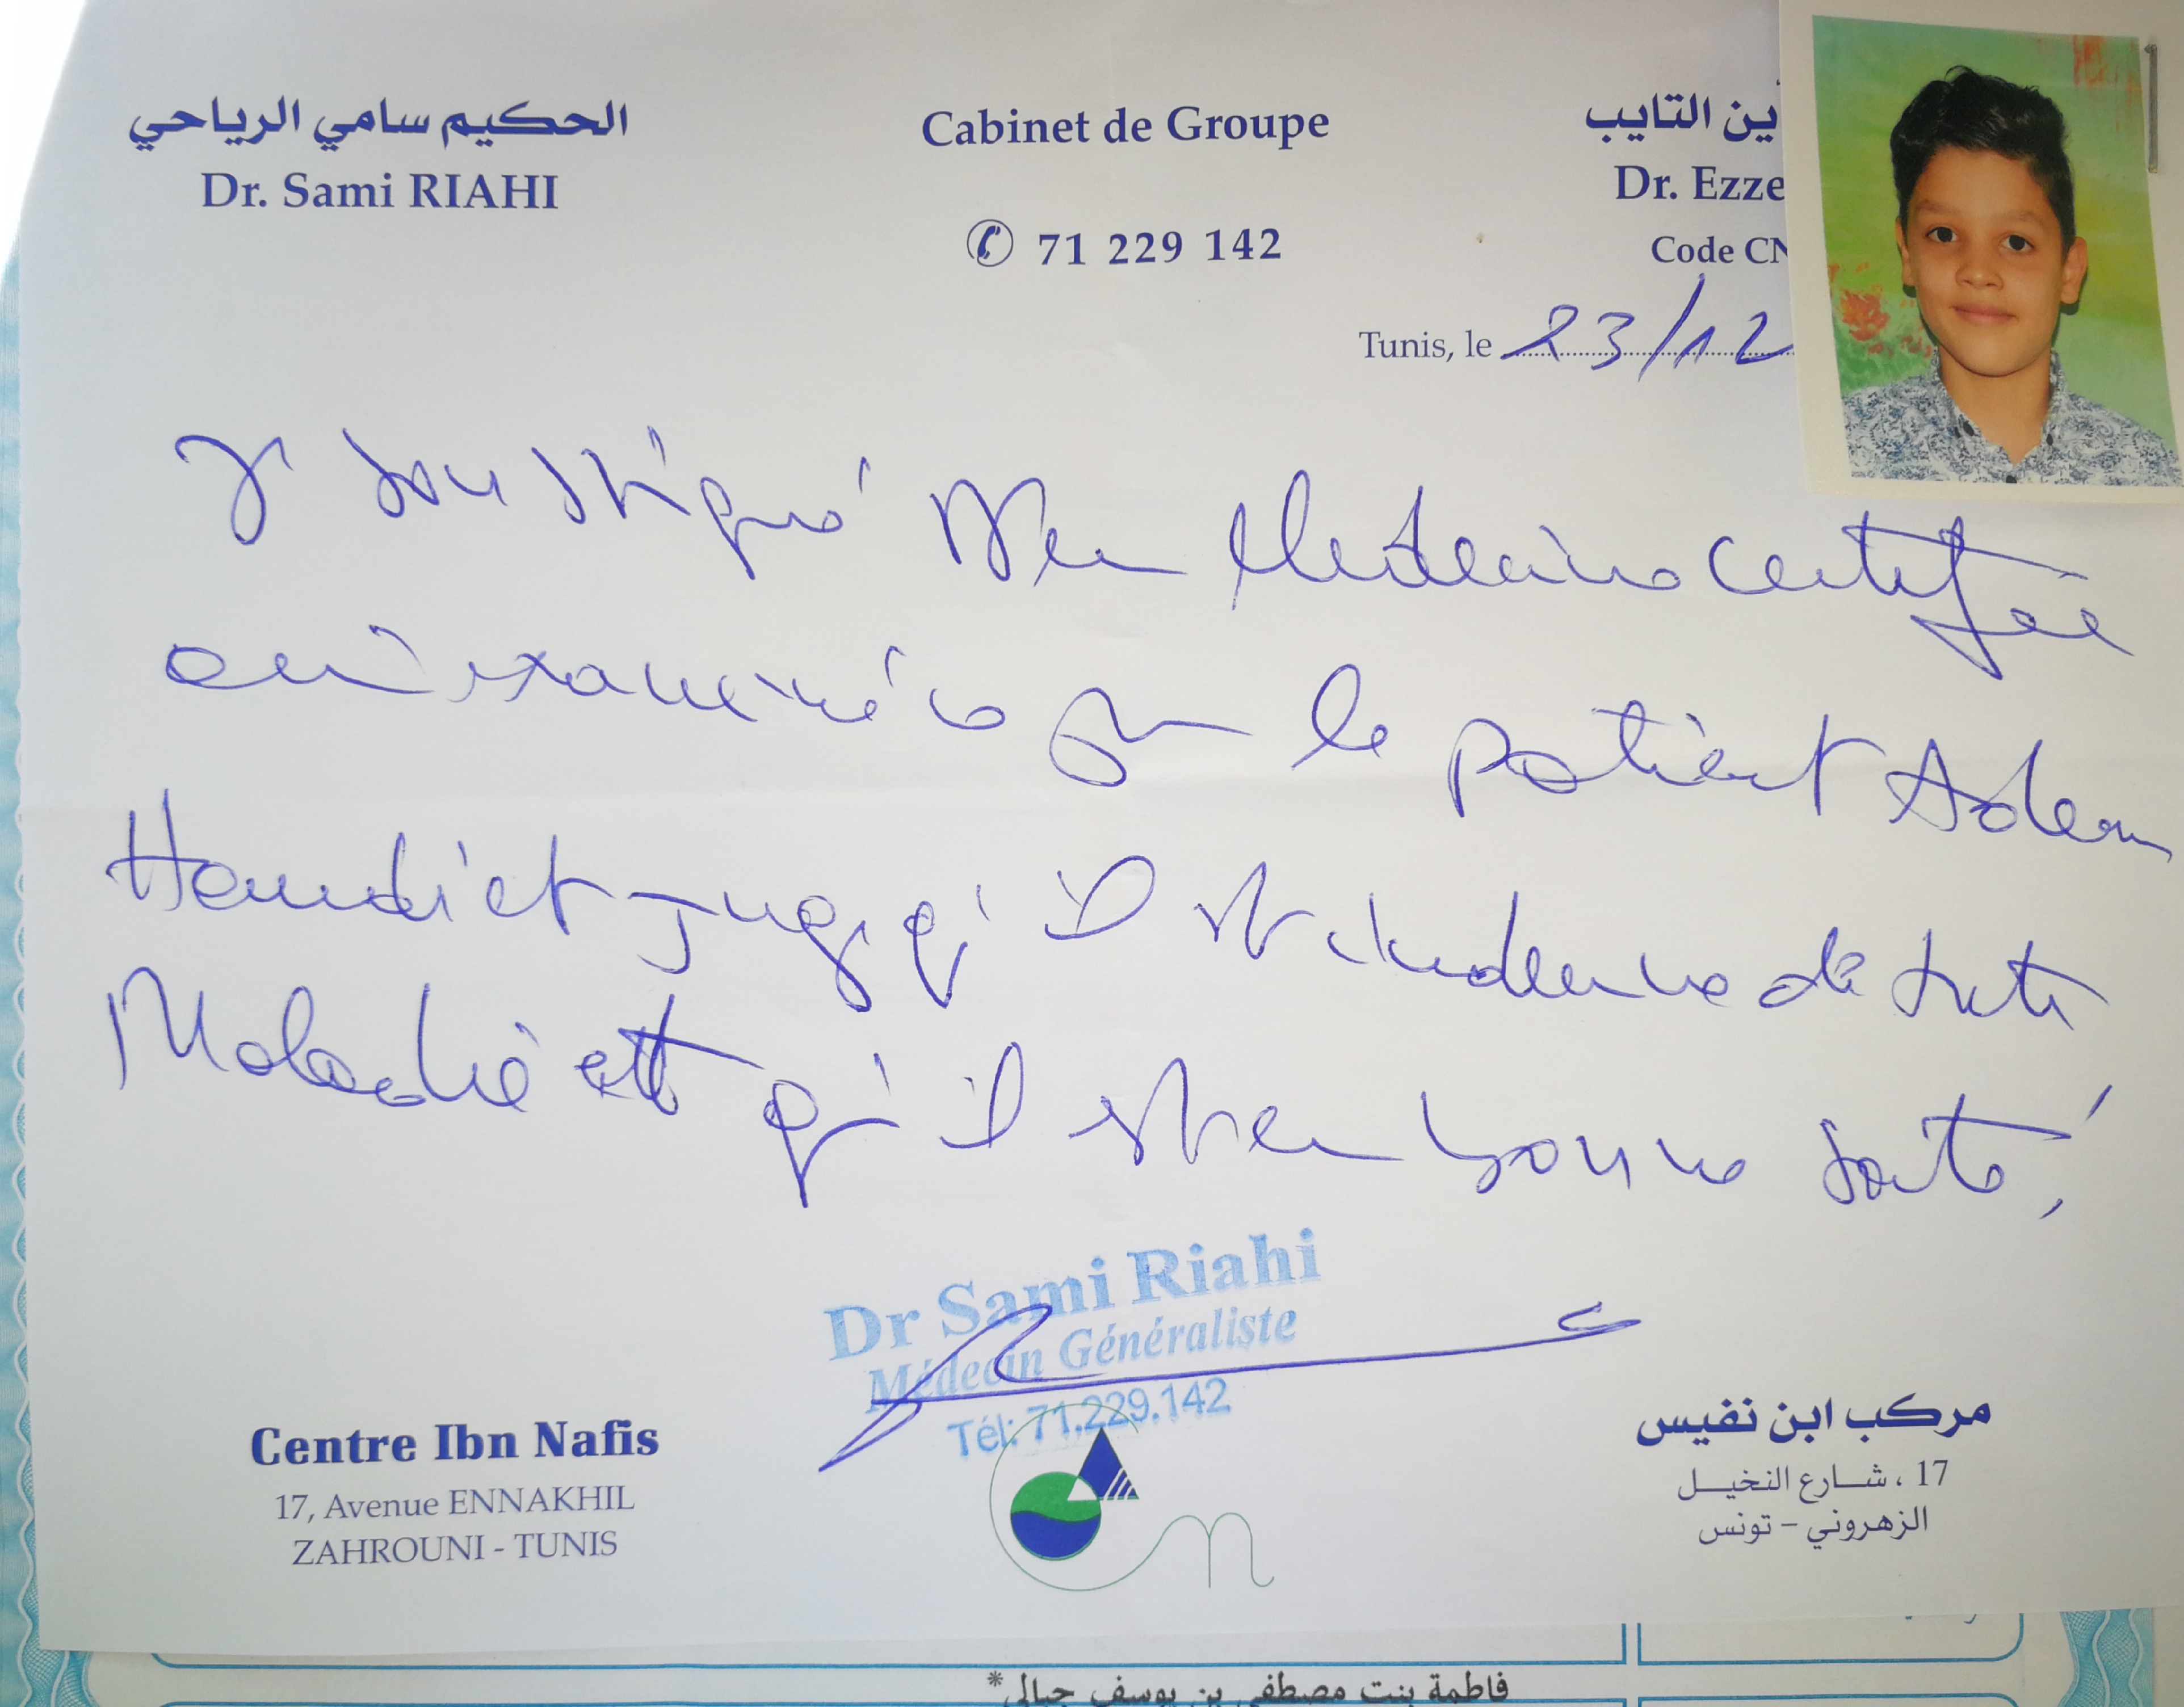 الحكيم سامي الرياحي
Dr. Sami RIAHI
Cabinet de Groupe
71 229 142
ين التايب
Dr. Ezze
Code CN
Tunis, le 23/12
Je soussigné Mem Medecin certifie
avoir examiné ce jour le patient Adem
Hamdi et juge qu'il est indemne de toute
Maladie et qu'il est en bonne santé,
Dr Sami Riahi
Médecin Généraliste
Tél: 71.229.142
Centre Ibn Nafis
17, Avenue ENNAKHIL
ZAHROUNI - TUNIS
مركب ابن نفيس
17 ، شارع النخيل
الزهروني - تونس
فاطمة بنت مصطفى بن يوسف جبالي*